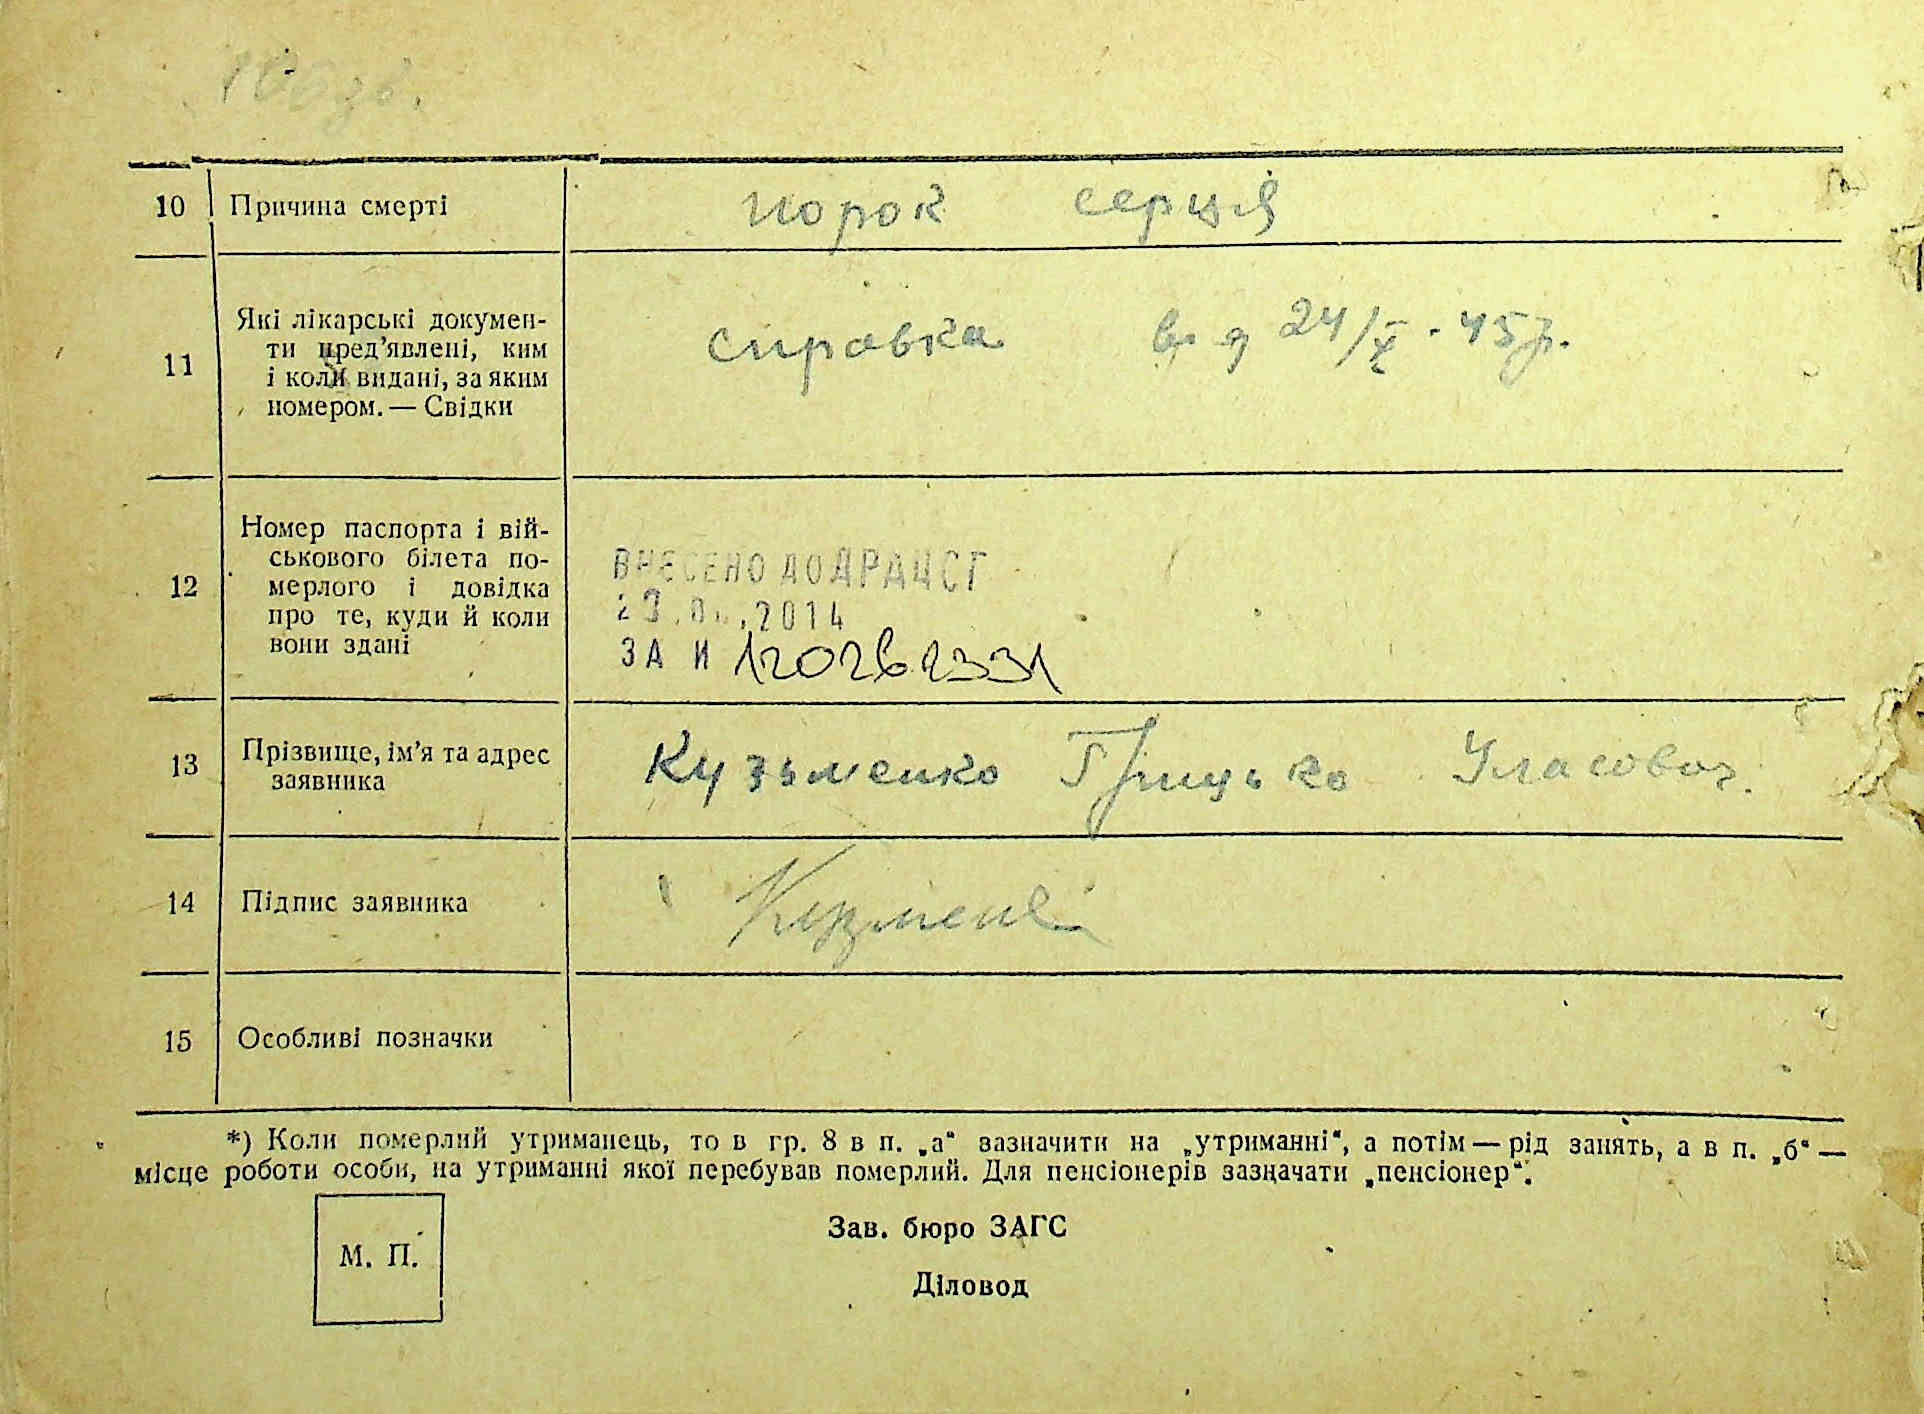 10 Причина смерті порок серця
11 Які лікарські докумен-
ти пред’явлені, ким
і коли видані, за яким
номером. — Свідки
справка від 24/X. 45 р.
12 Номер паспорта і вій-
ськового білета по-
мерлого і довідка
про те, куди й коли
вони здані
ВНЕСЕНО ДО ДРАЦСГ
2014
ЗА И
13 Прізвище, ім’я та адрес
заявника
Кузьменко Грицько Уласович
14 Підпис заявника Кузмен
15 Особливі позначки
*) Коли померлий утриманець, то в гр. 8 в п. „а“ зазначити на „утриманні“, а потім — рід занять, а в п. „б“ —
місце роботи особи, на утриманні якої перебував померлий. Для пенсіонерів зазначати „пенсіонер“.
М. П.
Зав. бюро ЗАГС
Діловод